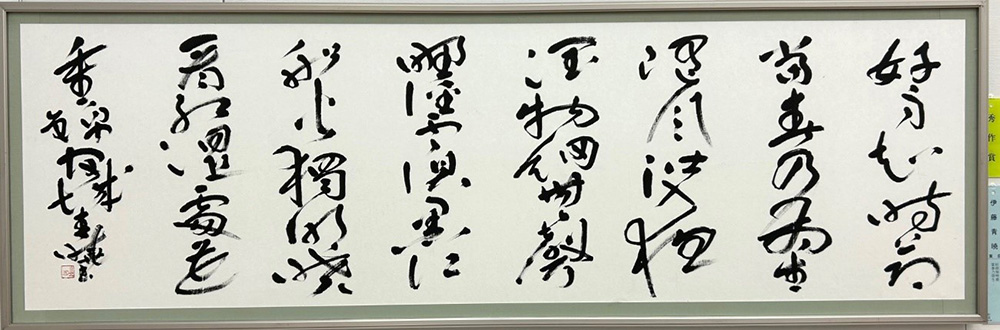 好雨知時節
當春乃發生
隨風潛入夜
潤物細無聲
野徑雲俱黑江
船火獨明曉
看紅濕處花
重錦官城
秀作賞
伊藤青曉